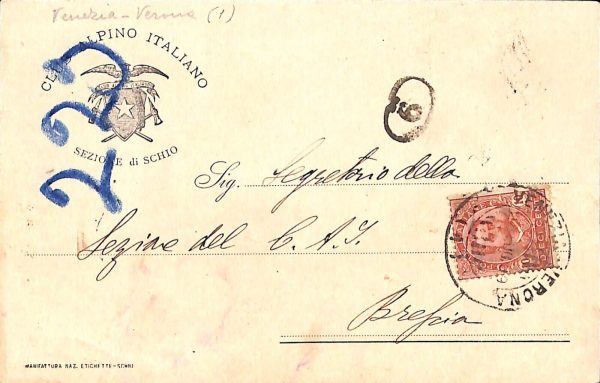 Venezia - Verona (1)
CLUB ALPINO ITALIANO
SEZIONE di SCHIO
227
6
Sig. Segretario della
Sezione del C. A. I.
Brescia
VENEZIA VERONA
MANIFATTURA NAZ. ETICHETTE - SCHIO